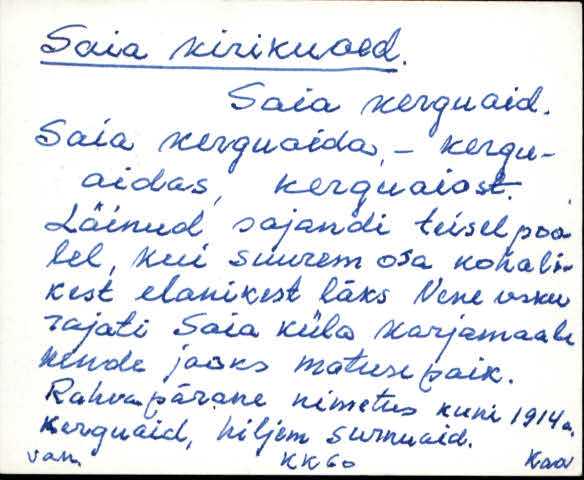 Saia kirikuaed.
Saia kerguaid.
Saia kerguaida, – kergu-
aidas, kerguaiast.
Läinud sajandi teisel poo-
lel, kui suurem osa kohali-
kest elanikest läks Vene usku
rajati Saia küla karjamaale
nende jaoks matusepaik.
Rahvapärane nimetus kuni 1914a.
kerguaid, hiljem surnuaid.
KK60 Kaa